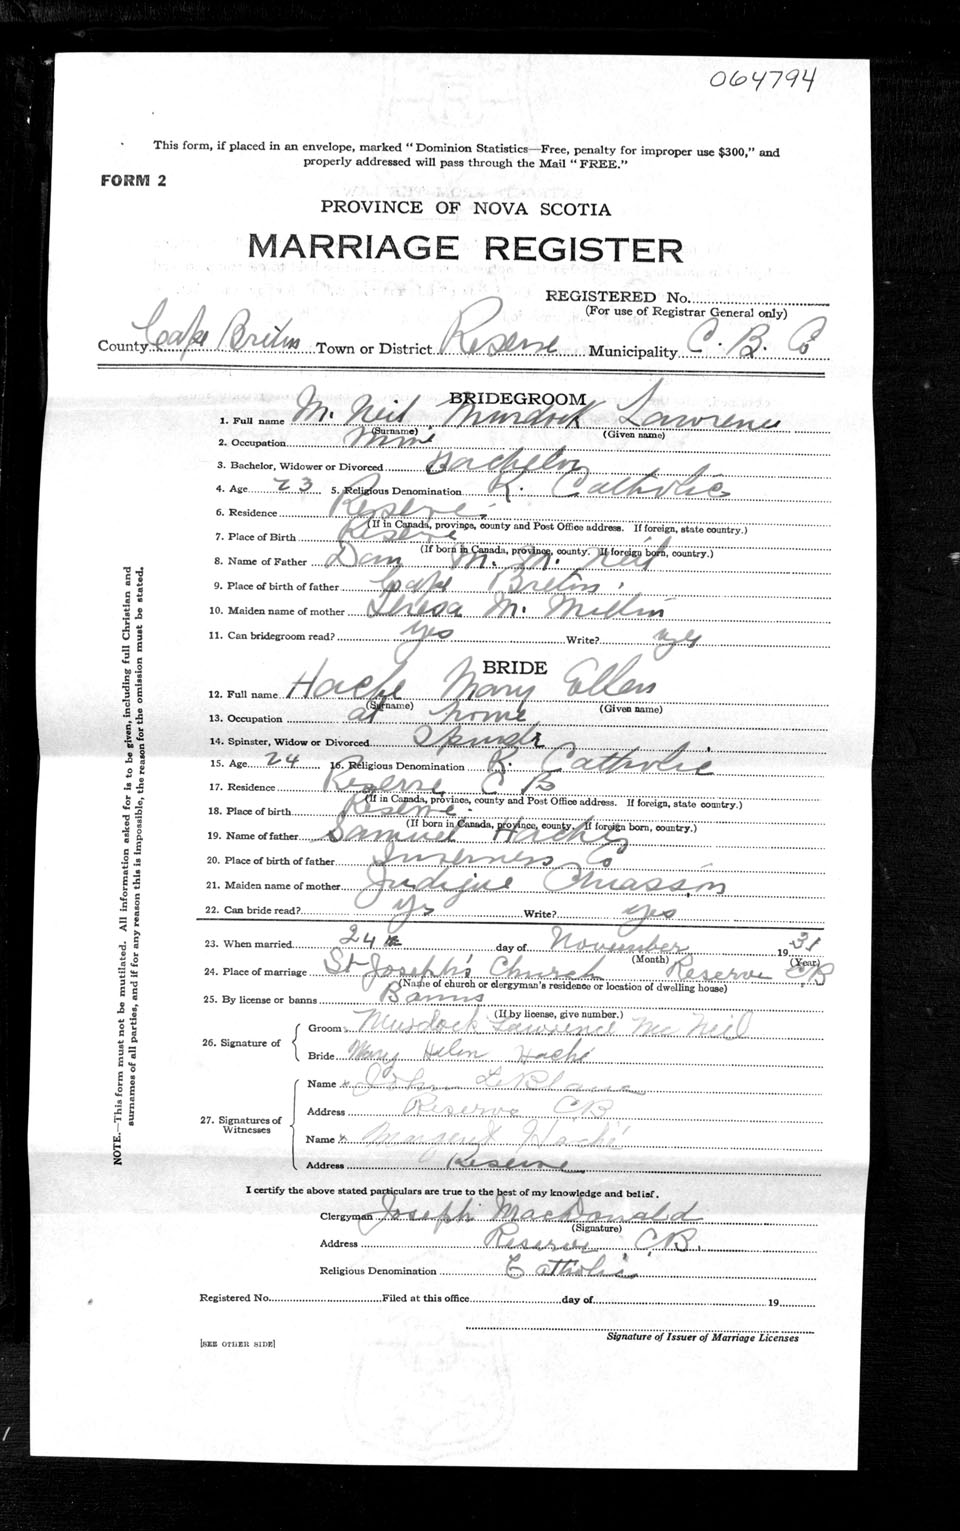 064794
This form, if placed in an envelope, marked "Dominion Statistics—Free, penalty for improper use $300," and
properly addressed will pass through the Mail "FREE."
FORM 2
PROVINCE OF NOVA SCOTIA
MARRIAGE REGISTER
REGISTERED No.
(For use of Registrar General only)
County Cape Breton Town or District Reserve Municipality C. B. Co
BRIDEGROOM
1. Full name Mc Neil Murdock Lawrence
(Surname) (Given name)
2. Occupation
3. Bachelor, Widower or Divorced Bachelor
4. Age 23 5. Religious Denomination R. Catholic
6. Residence Reserve
(If in Canada, province, county and Post Office address. If foreign, state country.)
7. Place of Birth Reserve
(If born in Canada, province, county. If foreign born, country.)
8. Name of Father Dan Mc Neil
9. Place of birth of father Cape Breton
10. Maiden name of mother Teresa Mc
11. Can bridegroom read? yes Write? yes
BRIDE
12. Full name Hache Mary Ellen
(Surname) (Given name)
13. Occupation at home
14. Spinster, Widow or Divorced
15. Age 24 16. Religious Denomination R. Catholic
17. Residence Reserve C B
(If in Canada, province, county and Post Office address. If foreign, state country.)
18. Place of birth Reserve
(If born in Canada, province, county. If foreign born, country.)
19. Name of father Samuel Hache
20. Place of birth of father Inverness Co
21. Maiden name of mother Chiasson
22. Can bride read? yes Write? yes
23. When married 24th day of November 1931
(Month) (Year)
24. Place of marriage St Joseph's Church Reserve CB
(Name of church or clergyman's residence or location of dwelling house)
25. By license or banns Banns
(If by license, give number.)
26. Signature of
Groom Murdock Lawrence Mc Neil
Bride Mary Helen Haché
27. Signatures of Witnesses
Name x John LeBlanc
Address Reserve CB
Name x Margaret Haché
Address Reserve
I certify the above stated particulars are true to the best of my knowledge and belief.
Clergyman Joseph MacDonald
(Signature)
Address Reserve C.B.
Religious Denomination Catholic
Registered No. Filed at this office day of 19
Signature of Issuer of Marriage Licenses
[SEE OTHER SIDE]
NOTE.—This form must not be mutilated. All information asked for is to be given, including full Christian and
surnames of all parties, and if for any reason this is impossible, the reason for the omission must be stated.